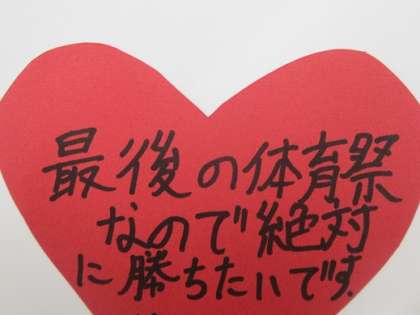 最後の体育祭
なので絶対
に勝ちたいです.